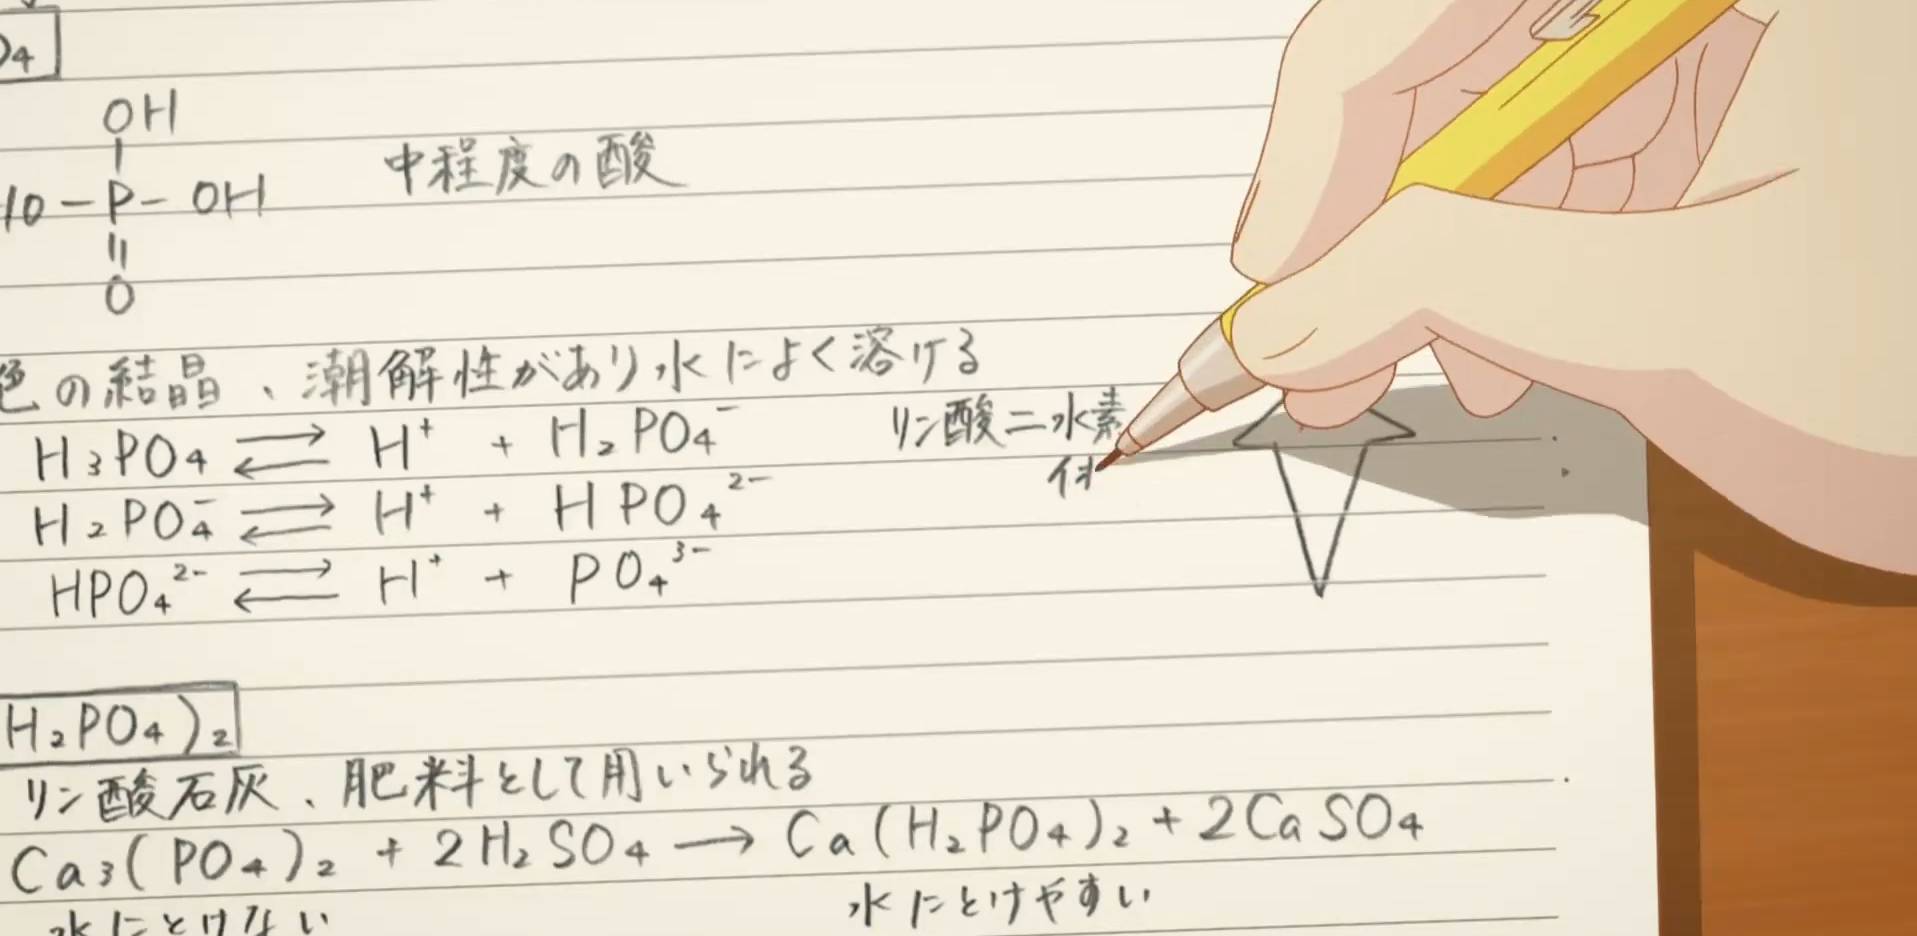 O₄
OH
HO－P－OH 中程度の酸
O
色の結晶、潮解性があり水によく溶ける
H₃PO₄ ⇄ H⁺ + H₂PO₄⁻ リン酸二水素
H₂PO₄⁻ ⇄ H⁺ + HPO₄²⁻
HPO₄²⁻ ⇄ H⁺ + PO₄³⁻
H₂PO₄)₂
リン酸石灰、肥料として用いられる
Ca₃(PO₄)₂ + 2H₂SO₄ → Ca(H₂PO₄)₂ + 2CaSO₄
水にとけない 水にとけやすい